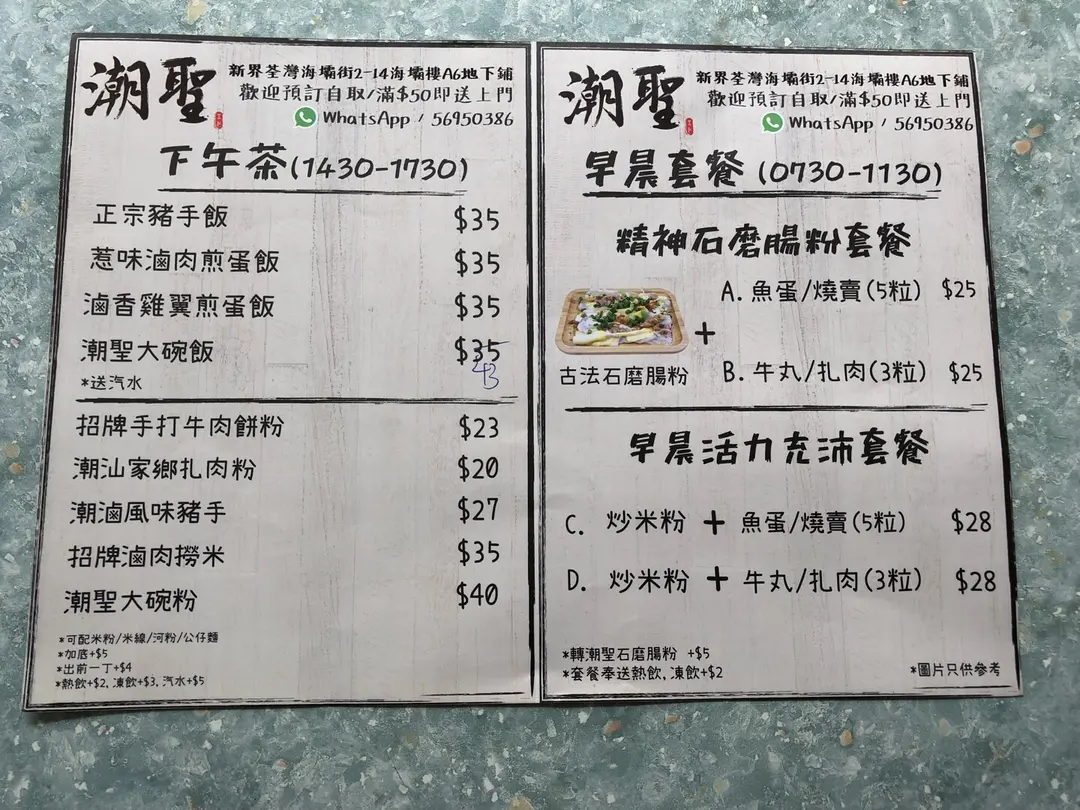 潮聖
新界荃灣海壩街2-14海壩樓A6地下鋪
歡迎預訂自取/滿$50即送上門
WhatsApp / 56950386
下午茶(1430-1730)
正宗豬手飯 $35
惹味滷肉煎蛋飯 $35
滷香雞翼煎蛋飯 $35
潮聖大碗飯 $35
43
*送汽水
招牌手打牛肉餅粉 $23
潮汕家鄉扎肉粉 $20
潮滷風味豬手 $27
招牌滷肉撈米 $35
潮聖大碗粉 $40
*可配米粉/米線/河粉/公仔麵
*加底+$5
*出前一丁+$4
*熱飲+$2, 凍飲+$3, 汽水+$5
潮聖
新界荃灣海壩街2-14海壩樓A6地下鋪
歡迎預訂自取/滿$50即送上門
WhatsApp / 56950386
早晨套餐 (0730-1130)
精神石磨腸粉套餐
A. 魚蛋/燒賣(5粒) $25
+
古法石磨腸粉
B. 牛丸/扎肉(3粒) $25
早晨活力充沛套餐
C. 炒米粉 + 魚蛋/燒賣(5粒) $28
D. 炒米粉 + 牛丸/扎肉(3粒) $28
*轉潮聖石磨腸粉 +$5
*套餐奉送熱飲, 凍飲+$2
*圖片只供參考